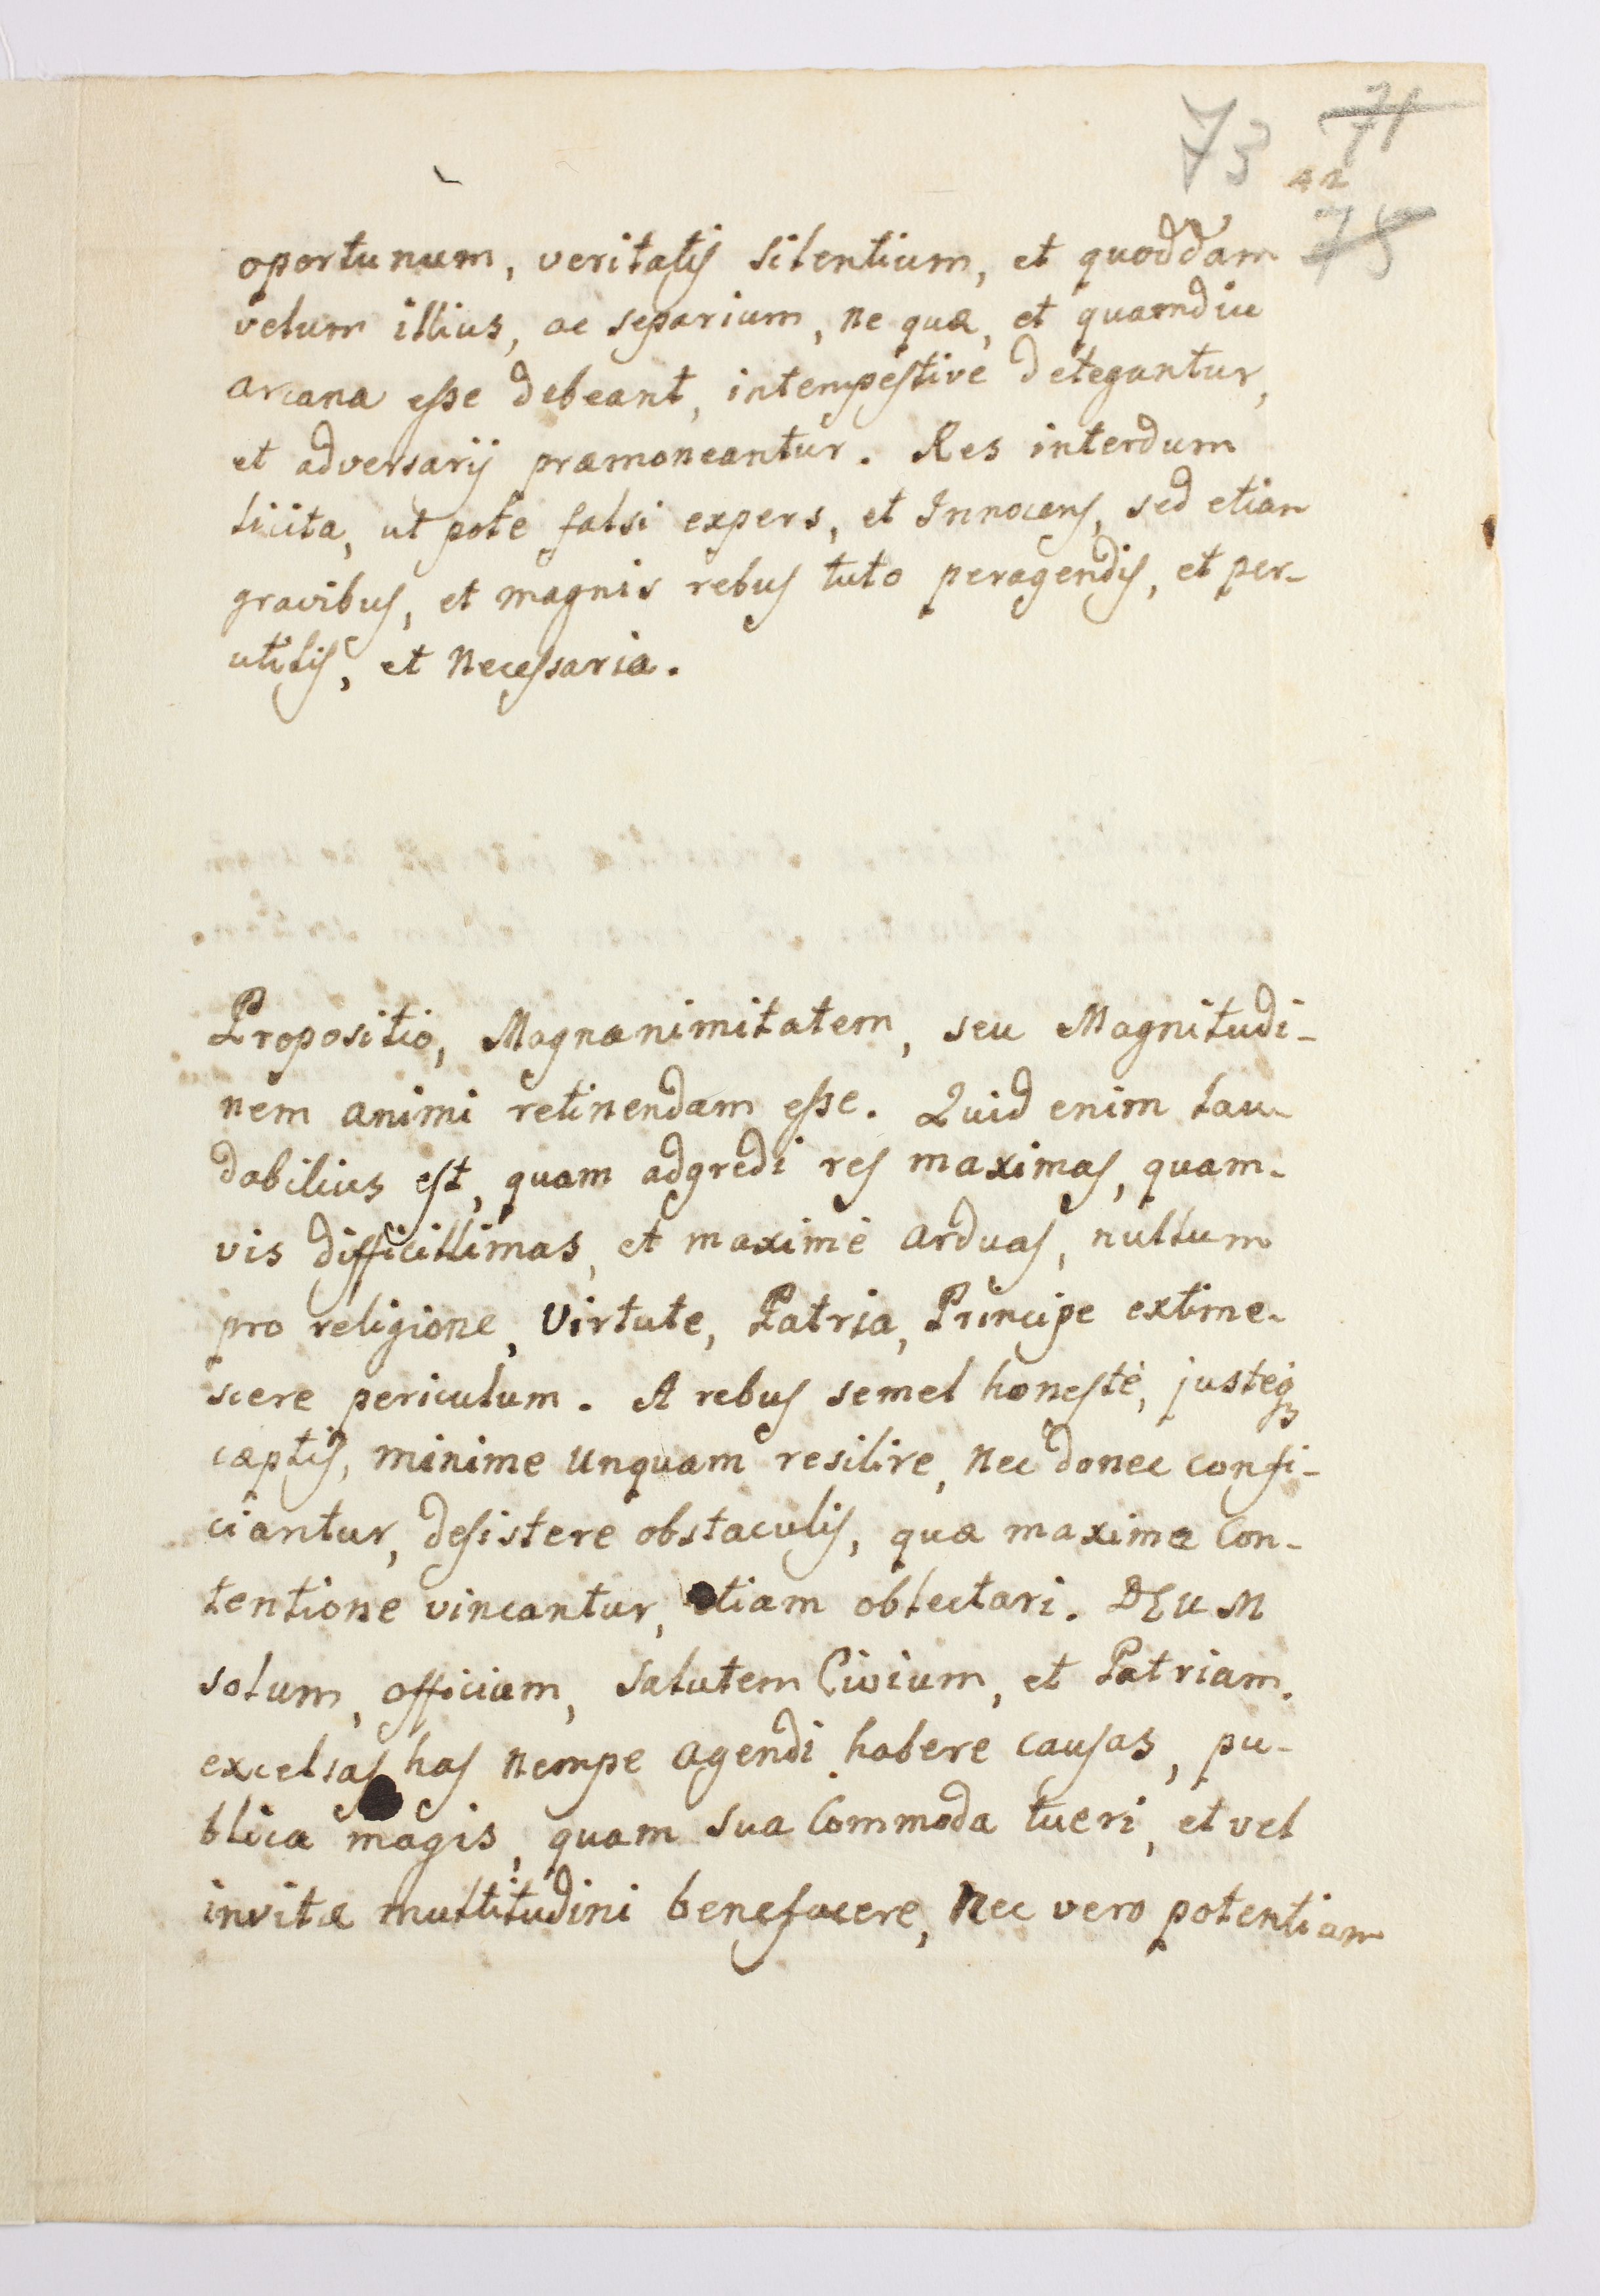 73 71
42
75
oportunum, veritatis silentium, et quoddam
velum illius, ac separium, ne quæ, et quamdiu
arcana esse debeant, intempestive detegantur,
et adversarij præmoneantur. Res interdum
licita, ut pote falsi expers, et Innocens, sed etiam
gravibus, et magnis rebus tuto peragendis, et per-
utilis, et necessaria.
Propositio, Magnanimitatem, seu Magnitudi-
nem animi retinendam esse. Quid enim lau-
dabilius est, quam adgredi res maximas, quam-
vis difficillimas, et maximè arduas, nullum
pro religione, Virtute, Patria, Principe extime-
scere periculum. A rebus semel honestè, justeq3
cæptis, minime unquam resilire, nec donec confi-
ciantur, desistere obstaculis, quæ maxima Con-
tentione vincantur, etiam oblectari. DEUM
solum, officium, salutem Civium, et Patriam.
excelsas has nempe agendi habere causas, pu-
blica magis, quam sua Commoda tueri, et vel
invitæ multitudini benefacere, nec vero potentiam